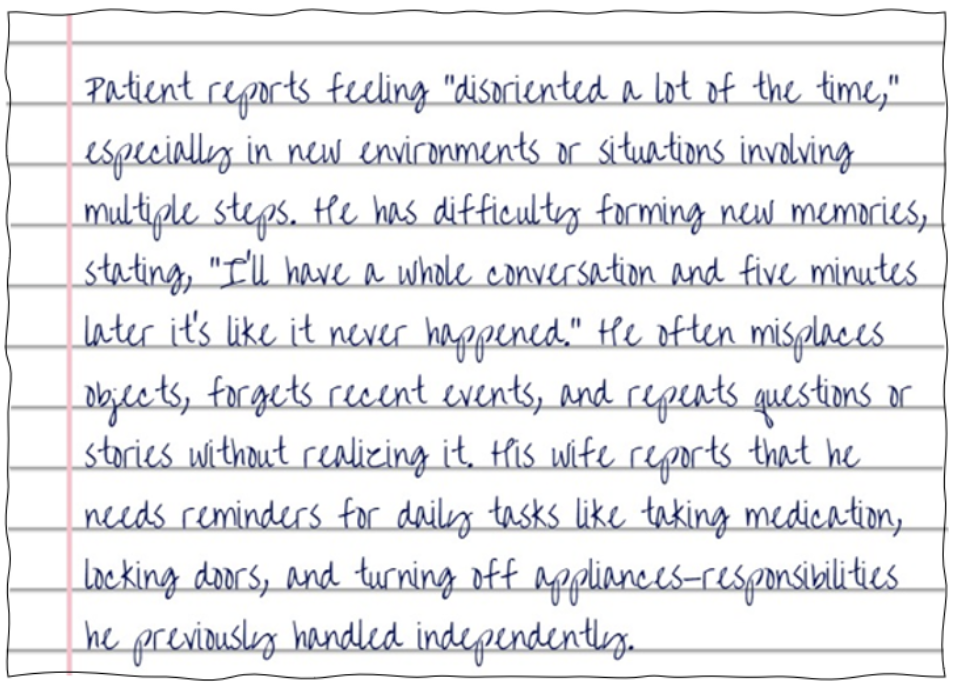 Patient reports feeling "disoriented a lot of the time,"
especially in new environments or situations involving
multiple steps. He has difficulty forming new memories,
stating, "I'll have a whole conversation and five minutes
later it's like it never happened." He often misplaces
objects, forgets recent events, and repeats questions or
stories without realizing it. His wife reports that he
needs reminders for daily tasks like taking medication,
locking doors, and turning off appliances–responsibilities
he previously handled independently.